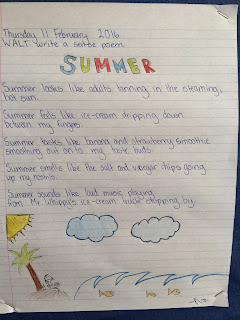 Thursday 11 February 2016
WALT: write a sense poem
SUMMER
Summer looks like adults tanning in the steaming,
hot sun.
Summer feels like ice-cream dripping down
between my fingers.
Summer tastes like banana and strawberry smoothie
smoothing out on to my taste buds.
Summer smells like the salt and vinegar chips going
up my nostrils.
Summer sounds like loud music playing
from Mr. Whippy's ice-cream truck stopping by.